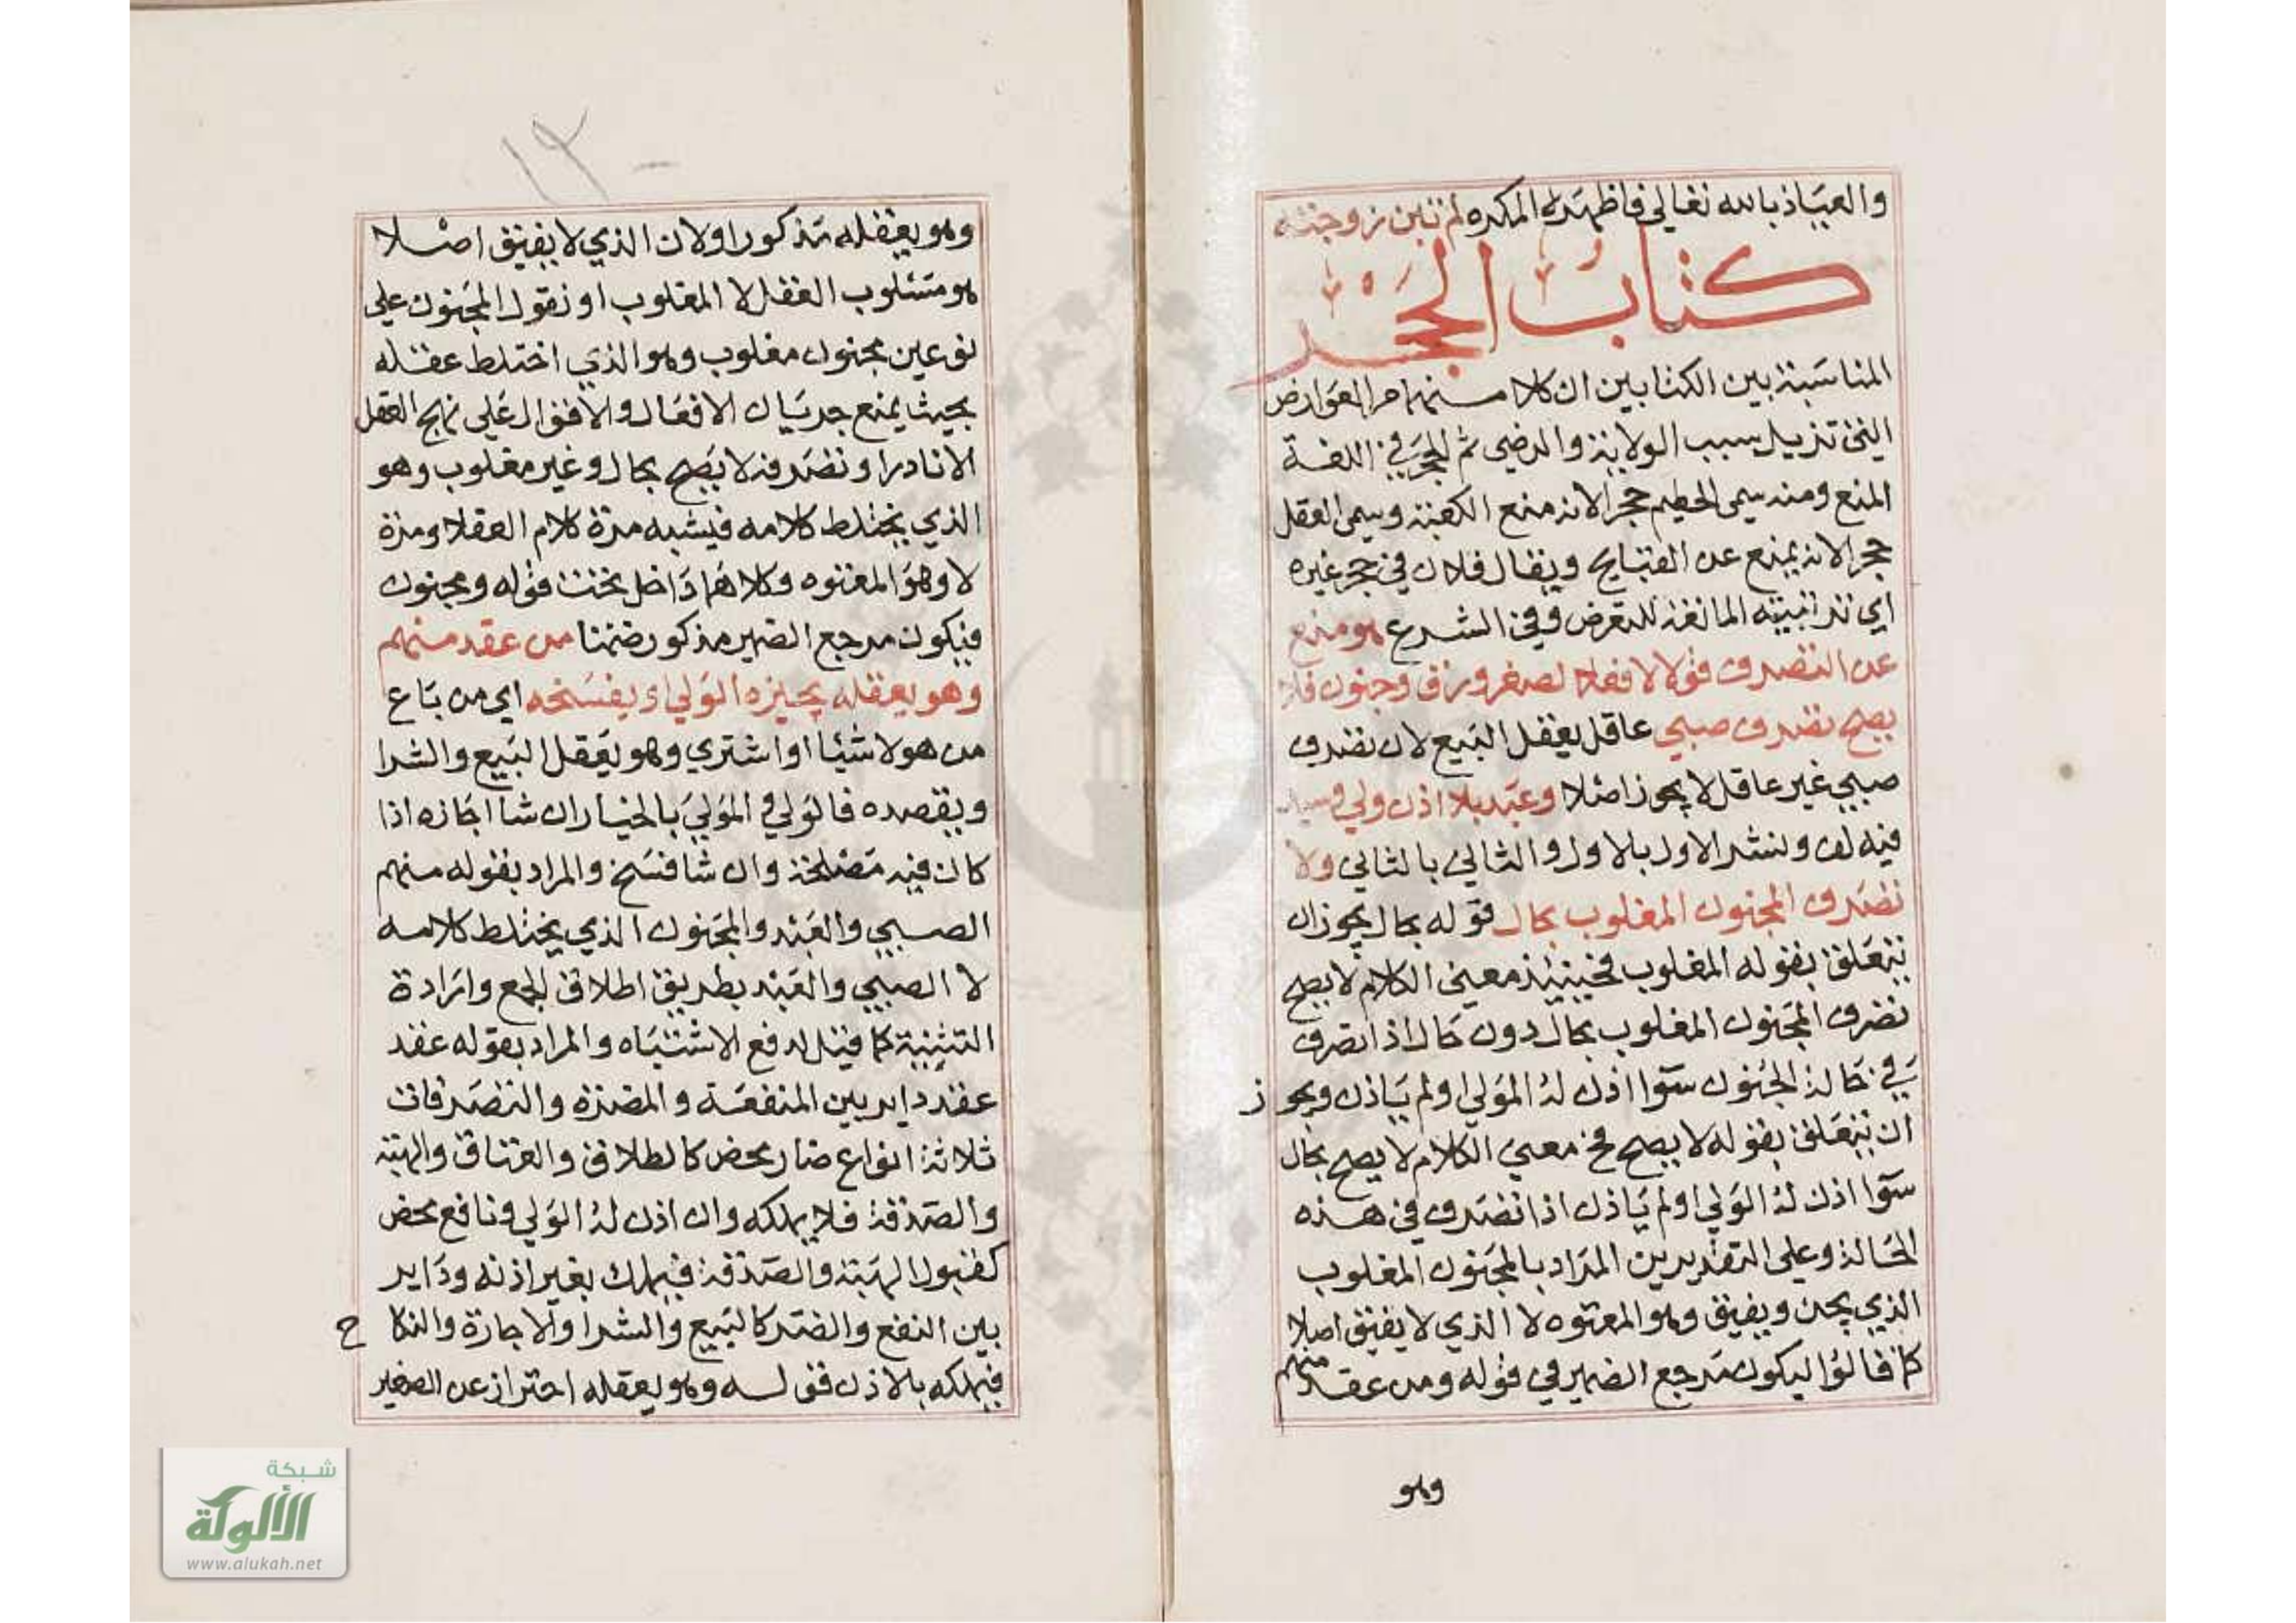 والعياذ بالله تعالى فاظهره المكره لم تبن زوجته
كتاب الحجر
المناسبة بين الكتابين ان كلا منهما من العوارض
التي تزيل سبب الولاية والرضى ثم الحجر في اللغة
المنع ومنه سمى الحطيم حجرا لانه منع الكعبة وسمى العقل
حجرا لانه يمنع عن القبايح ويقال فلان في حجر غيره
اي تربيته المانعة للتعرض وفي الشرع هو منع
عن التصرف قولا لا فعلا لصغر ورق وجنون فلا
يصح تصرف صبي عاقل يعقل البيع لان تصرف
صبي غير عاقل لا يجوز اصلا وعبد بلا اذن ولي وسيد
فيه لف ونشر الاول بالاول والثاني بالثاني ولا
تصرف المجنون المغلوب بحال قوله بحال يجوز ان
يتعلق بقوله المغلوب فحينئذ معنى الكلام لا يصح
تصرف المجنون المغلوب بحال دون حال اذا تصرف
في حالة الجنون سوا اذن له المولي او لم ياذن ويجوز
ان يتعلق بقوله لا يصح فح معنى الكلام لا يصح بحال
سوا اذن له الولي او لم ياذن اذا تصرف في هذه
الحالة وعلى التقديرين المراد بالمجنون المغلوب
الذي يجن ويفيق وهو المعتوه لا الذي لا يفيق اصلا
كما قالوا ليكون مرجع الضمير في قوله ومن عقد منهم
وهو
وهو يعقله مذكورا ولان الذي لا يفيق اصلا
هو مسلوب العقل لا المغلوب او نقول المجنون على
نوعين مجنون مغلوب وهو الذي اختلط عقله
بحيث يمنع جريان الافعال والاقوال على نهج العقل
الا نادرا وتصرفه لا يصح بحال وغير مغلوب وهو
الذي يختلط كلامه فيشبه مرة كلام العقلا ومرة
لا وهو المعتوه وكلاهما داخل تحت قوله ومجنون
فيكون مرجع الضمير مذكور ضمنا من عقد منهم
وهو يعقله يجيزه الولي او يفسخه اي من باع
من هولا شيئا او اشتري وهو يعقل البيع والشرا
ويقصده فالولي او المولي بالخيار ان شا اجازه اذا
كان فيه مصلحة وان شا فسخ والمراد بقوله منهم
الصبي والعبد والمجنون الذي يختلط كلامه
لا الصبي والعبد بطريق اطلاق الجمع وارادة
التثنية كما قيل لدفع الاشتباه والمراد بقوله عقد
عقد داير بين المنفعة والمضرة والتصرفات
ثلاثة انواع ضار محض كالطلاق والعتاق والهبة
والصدقة فلا يملكه وان اذن له الولي ونافع محض
كقبول الهبة والصدقة فيملك بغير اذنه وداير
بين النفع والضر كالبيع والشرا والاجارة والنكاح
فيملكه بالاذن فقوله وهو يعقله احتراز عن الصغير
شبكة
الألوكة
www.alukah.net